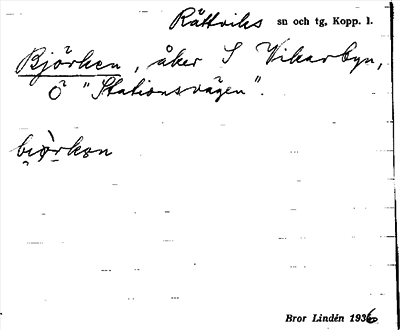 Rättviks sn och tg, Kopp. l.
Björken, åker S Vikarbyn,
Ö "Stationsvägen".
biörkən
Bror Lindén 1936